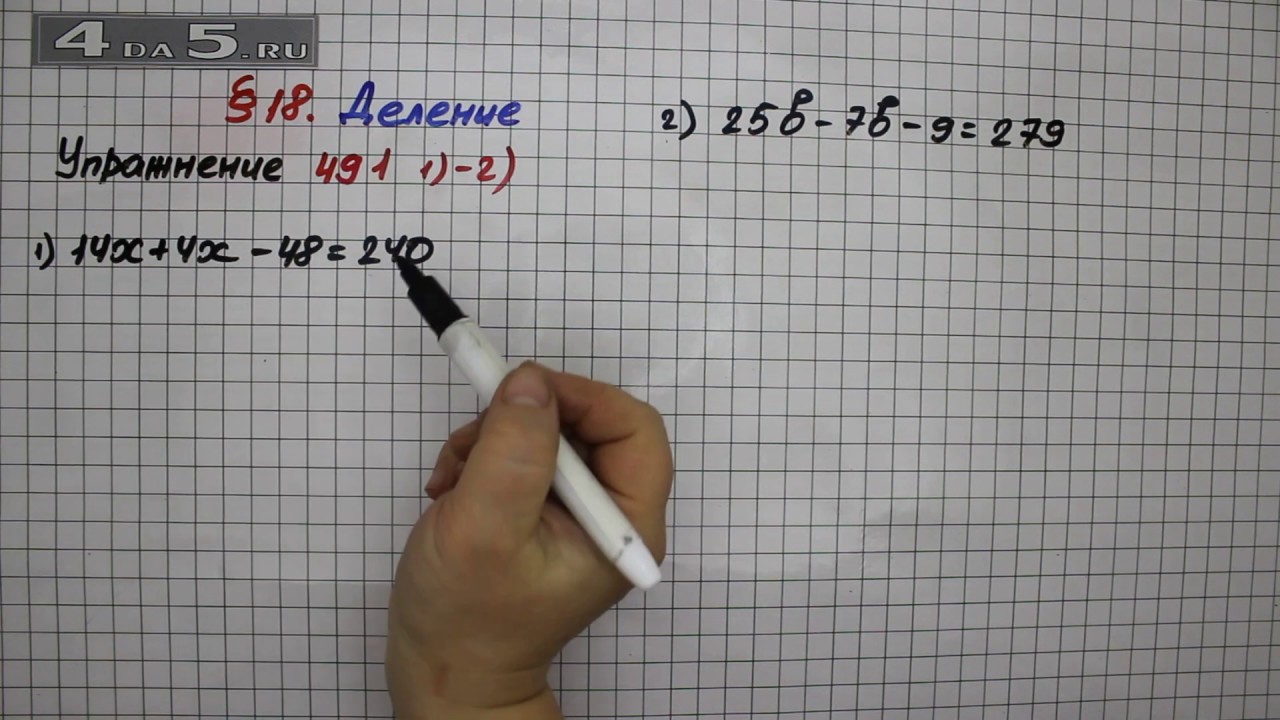 4 DA 5.RU
§ 18. Деление
Упражнение 491 1)-2)
1) 14x + 4x - 48 = 240
2) 25б - 7б - 9 = 279